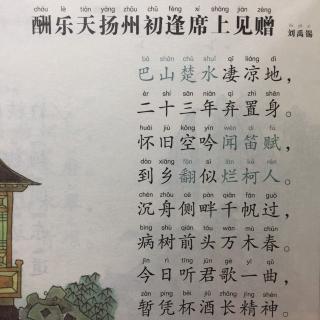 chóu lè tiān yáng zhōu chū féng xí shàng jiàn zèng
酬乐天扬州初逢席上见赠
刘禹锡
bā shān chǔ shuǐ qī liáng dì
巴山楚水凄凉地，
èr shí sān nián qì zhì shēn
二十三年弃置身。
huái jiù kōng yín wén dí fù
怀旧空吟闻笛赋，
dào xiāng fān sì làn kē rén
到乡翻似烂柯人。
chén zhōu cè pàn qiān fān guò
沉舟侧畔千帆过，
bìng shù qián tóu wàn mù chūn
病树前头万木春。
jīn rì tīng jūn gē yì qǔ
今日听君歌一曲，
zàn píng bēi jiǔ zhǎng jīng shén
暂凭杯酒长精神。